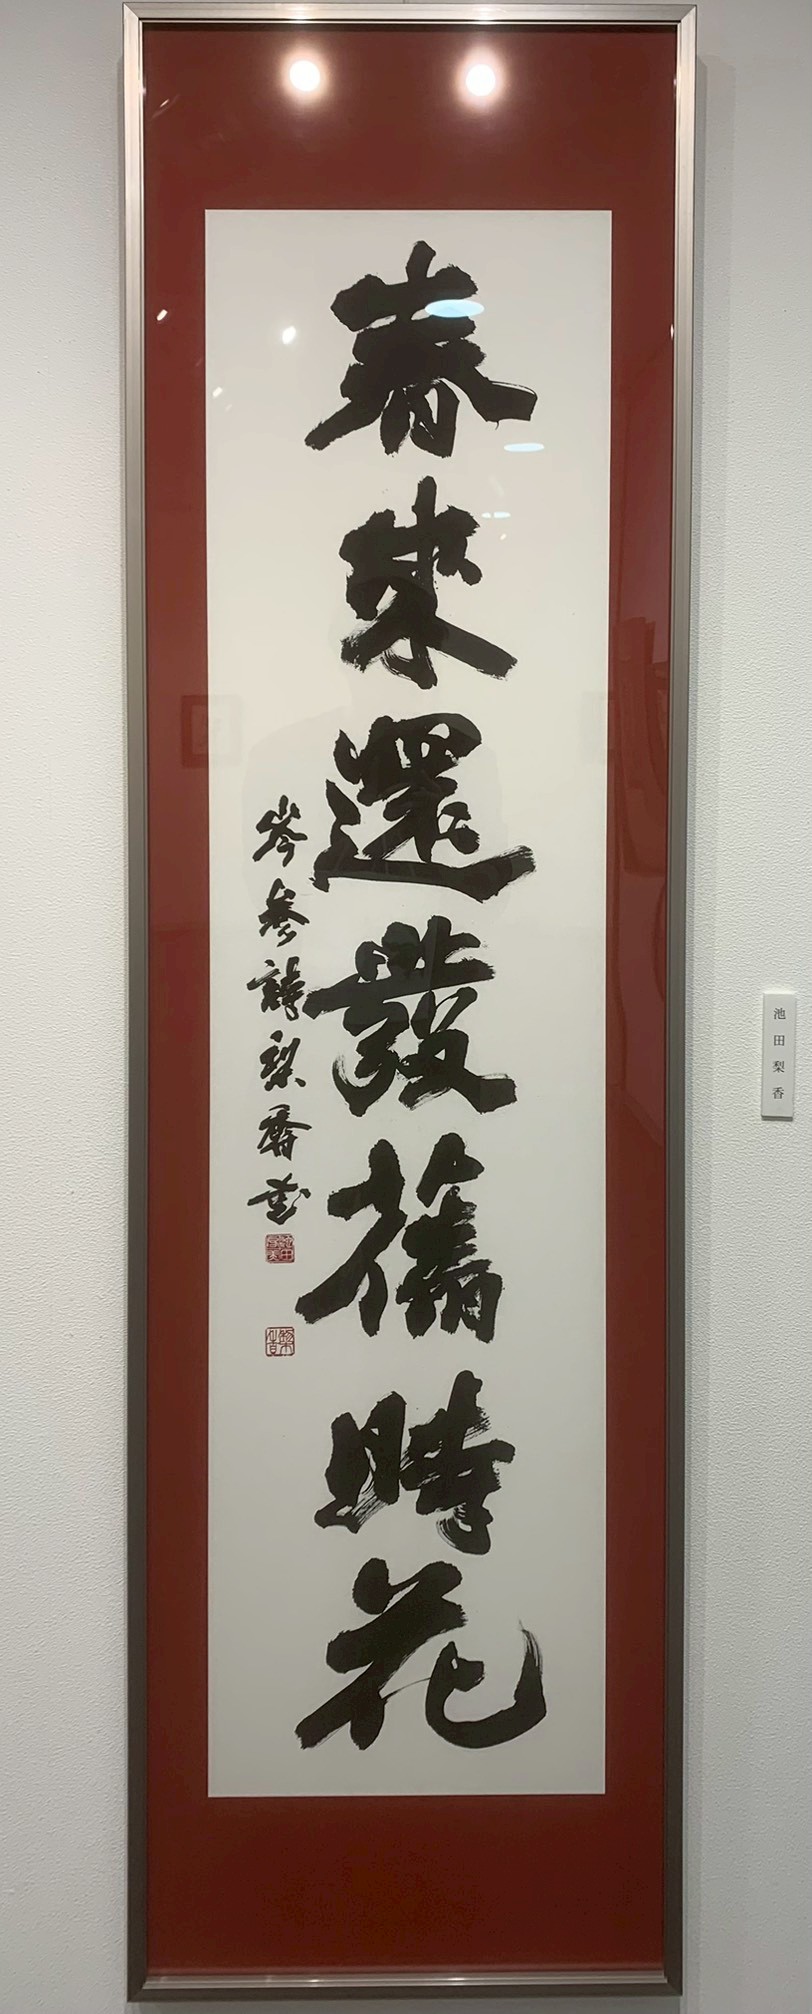 春來還發舊時花
岑參詩梨香書
池田梨香